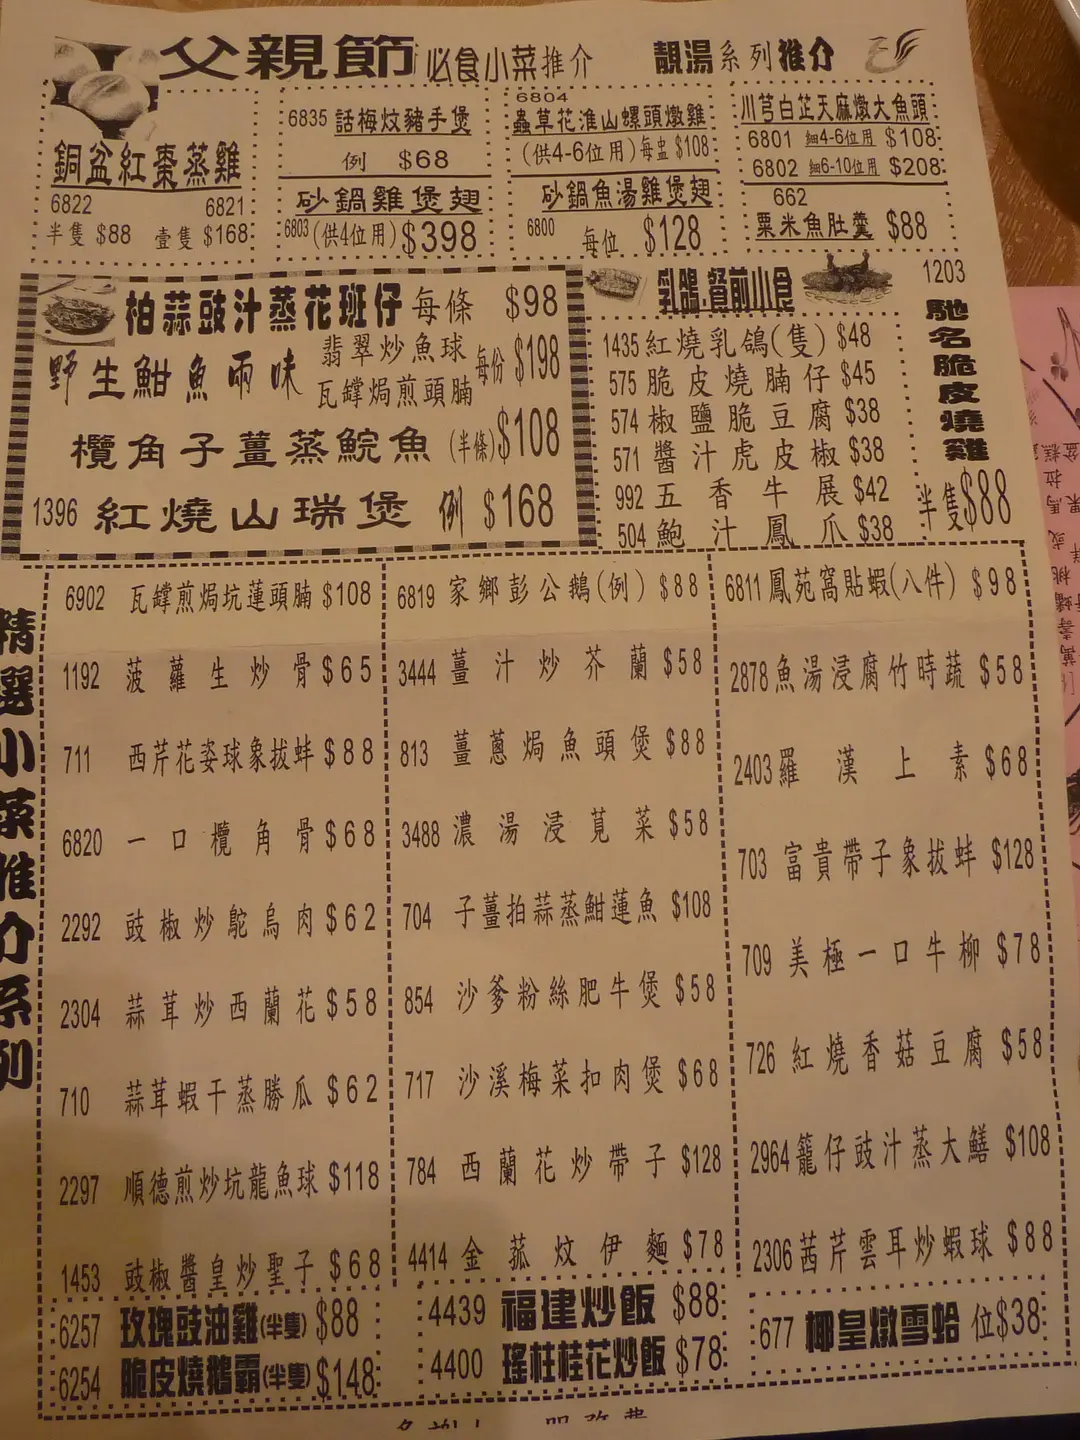 父親節 必食小菜推介 靚湯系列推介
銅盆紅棗蒸雞
6822 6821
半隻 $88 壹隻 $168
6835 話梅炆豬手煲
例 $68
砂鍋雞煲翅
6803 (供4位用) $398
6804
蟲草花淮山螺頭燉雞
(供4-6位用) 每盅 $108
砂鍋魚湯雞煲翅
6800 每位 $128
川芎白芷天麻燉大魚頭
6801 細4-6位用 $108
6802 細6-10位用 $208
662
粟米魚肚羹 $88
柏蒜豉汁蒸花班仔 每條 $98
野生魽魚兩味 翡翠炒魚球 瓦罉焗煎頭腩 每份 $198
欖角子薑蒸鯇魚 (半條) $108
1396 紅燒山瑞煲 例 $168
乳鴿.餐前小食
1435 紅燒乳鴿(隻) $48
575 脆皮燒腩仔 $45
574 椒鹽脆豆腐 $38
571 醬汁虎皮椒 $38
992 五香牛展 $42
504 鮑汁鳳爪 $38
1203
馳名脆皮燒雞
半隻 $88
精選小菜推介系列
6902 瓦罉煎焗坑蓮頭腩 $108
1192 菠蘿生炒骨 $65
711 西芹花姿球象拔蚌 $88
6820 一口欖角骨 $68
2292 豉椒炒鴕鳥肉 $62
2304 蒜茸炒西蘭花 $58
710 蒜茸蝦干蒸勝瓜 $62
2297 順德煎炒坑龍魚球 $118
1453 豉椒醬皇炒聖子 $68
6819 家鄉彭公鵝(例) $88
3444 薑汁炒芥蘭 $58
813 薑蔥焗魚頭煲 $88
3488 濃湯浸莧菜 $58
704 子薑拍蒜蒸魽蓮魚 $108
854 沙爹粉絲肥牛煲 $58
717 沙溪梅菜扣肉煲 $68
784 西蘭花炒帶子 $128
4414 金菰炆伊麵 $78
6811 鳳苑窩貼蝦(八件) $98
2878 魚湯浸腐竹時蔬 $58
2403 羅漢上素 $68
703 富貴帶子象拔蚌 $128
709 美極一口牛柳 $78
726 紅燒香菇豆腐 $58
2964 籠仔豉汁蒸大鱔 $108
2306 茜芹雲耳炒蝦球 $88
6257 玫瑰豉油雞(半隻) $88
6254 脆皮燒鵝霸(半隻) $148
4439 福建炒飯 $88
4400 瑤柱桂花炒飯 $78
677 椰皇燉雪蛤 位 $38